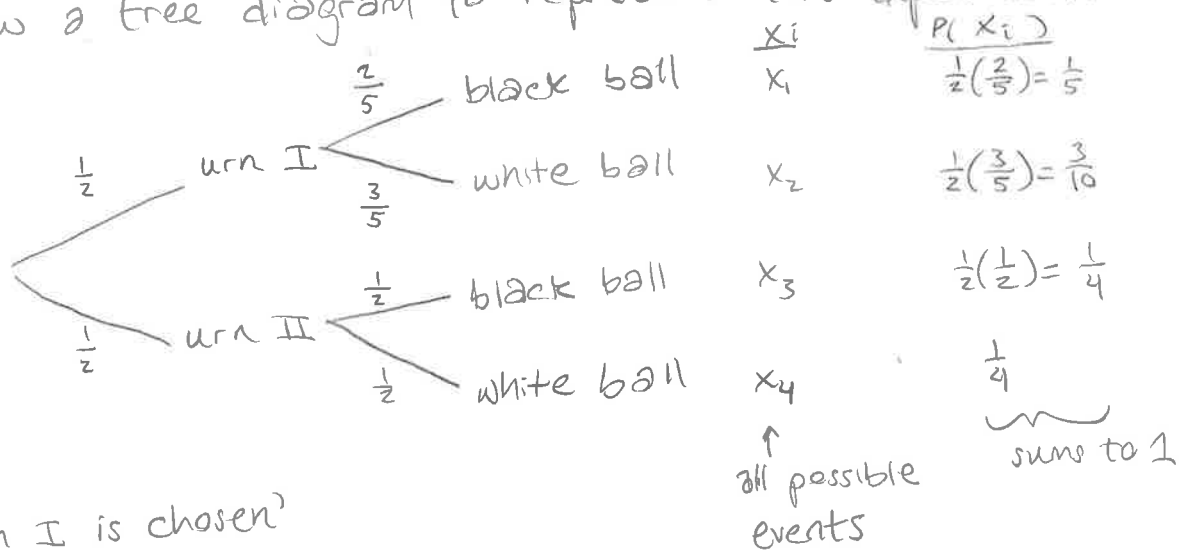 a tree diagram to
xi P( xi )
2/5 black ball x₁ 1/2(2/5)= 1/5
1/2 urn I
3/5 white ball x₂ 1/2(3/5)= 3/10
1/2 black ball x₃ 1/2(1/2)= 1/4
1/2 urn II
1/2 white ball x₄ 1/4
↑ sums to 1
all possible
events
I is chosen